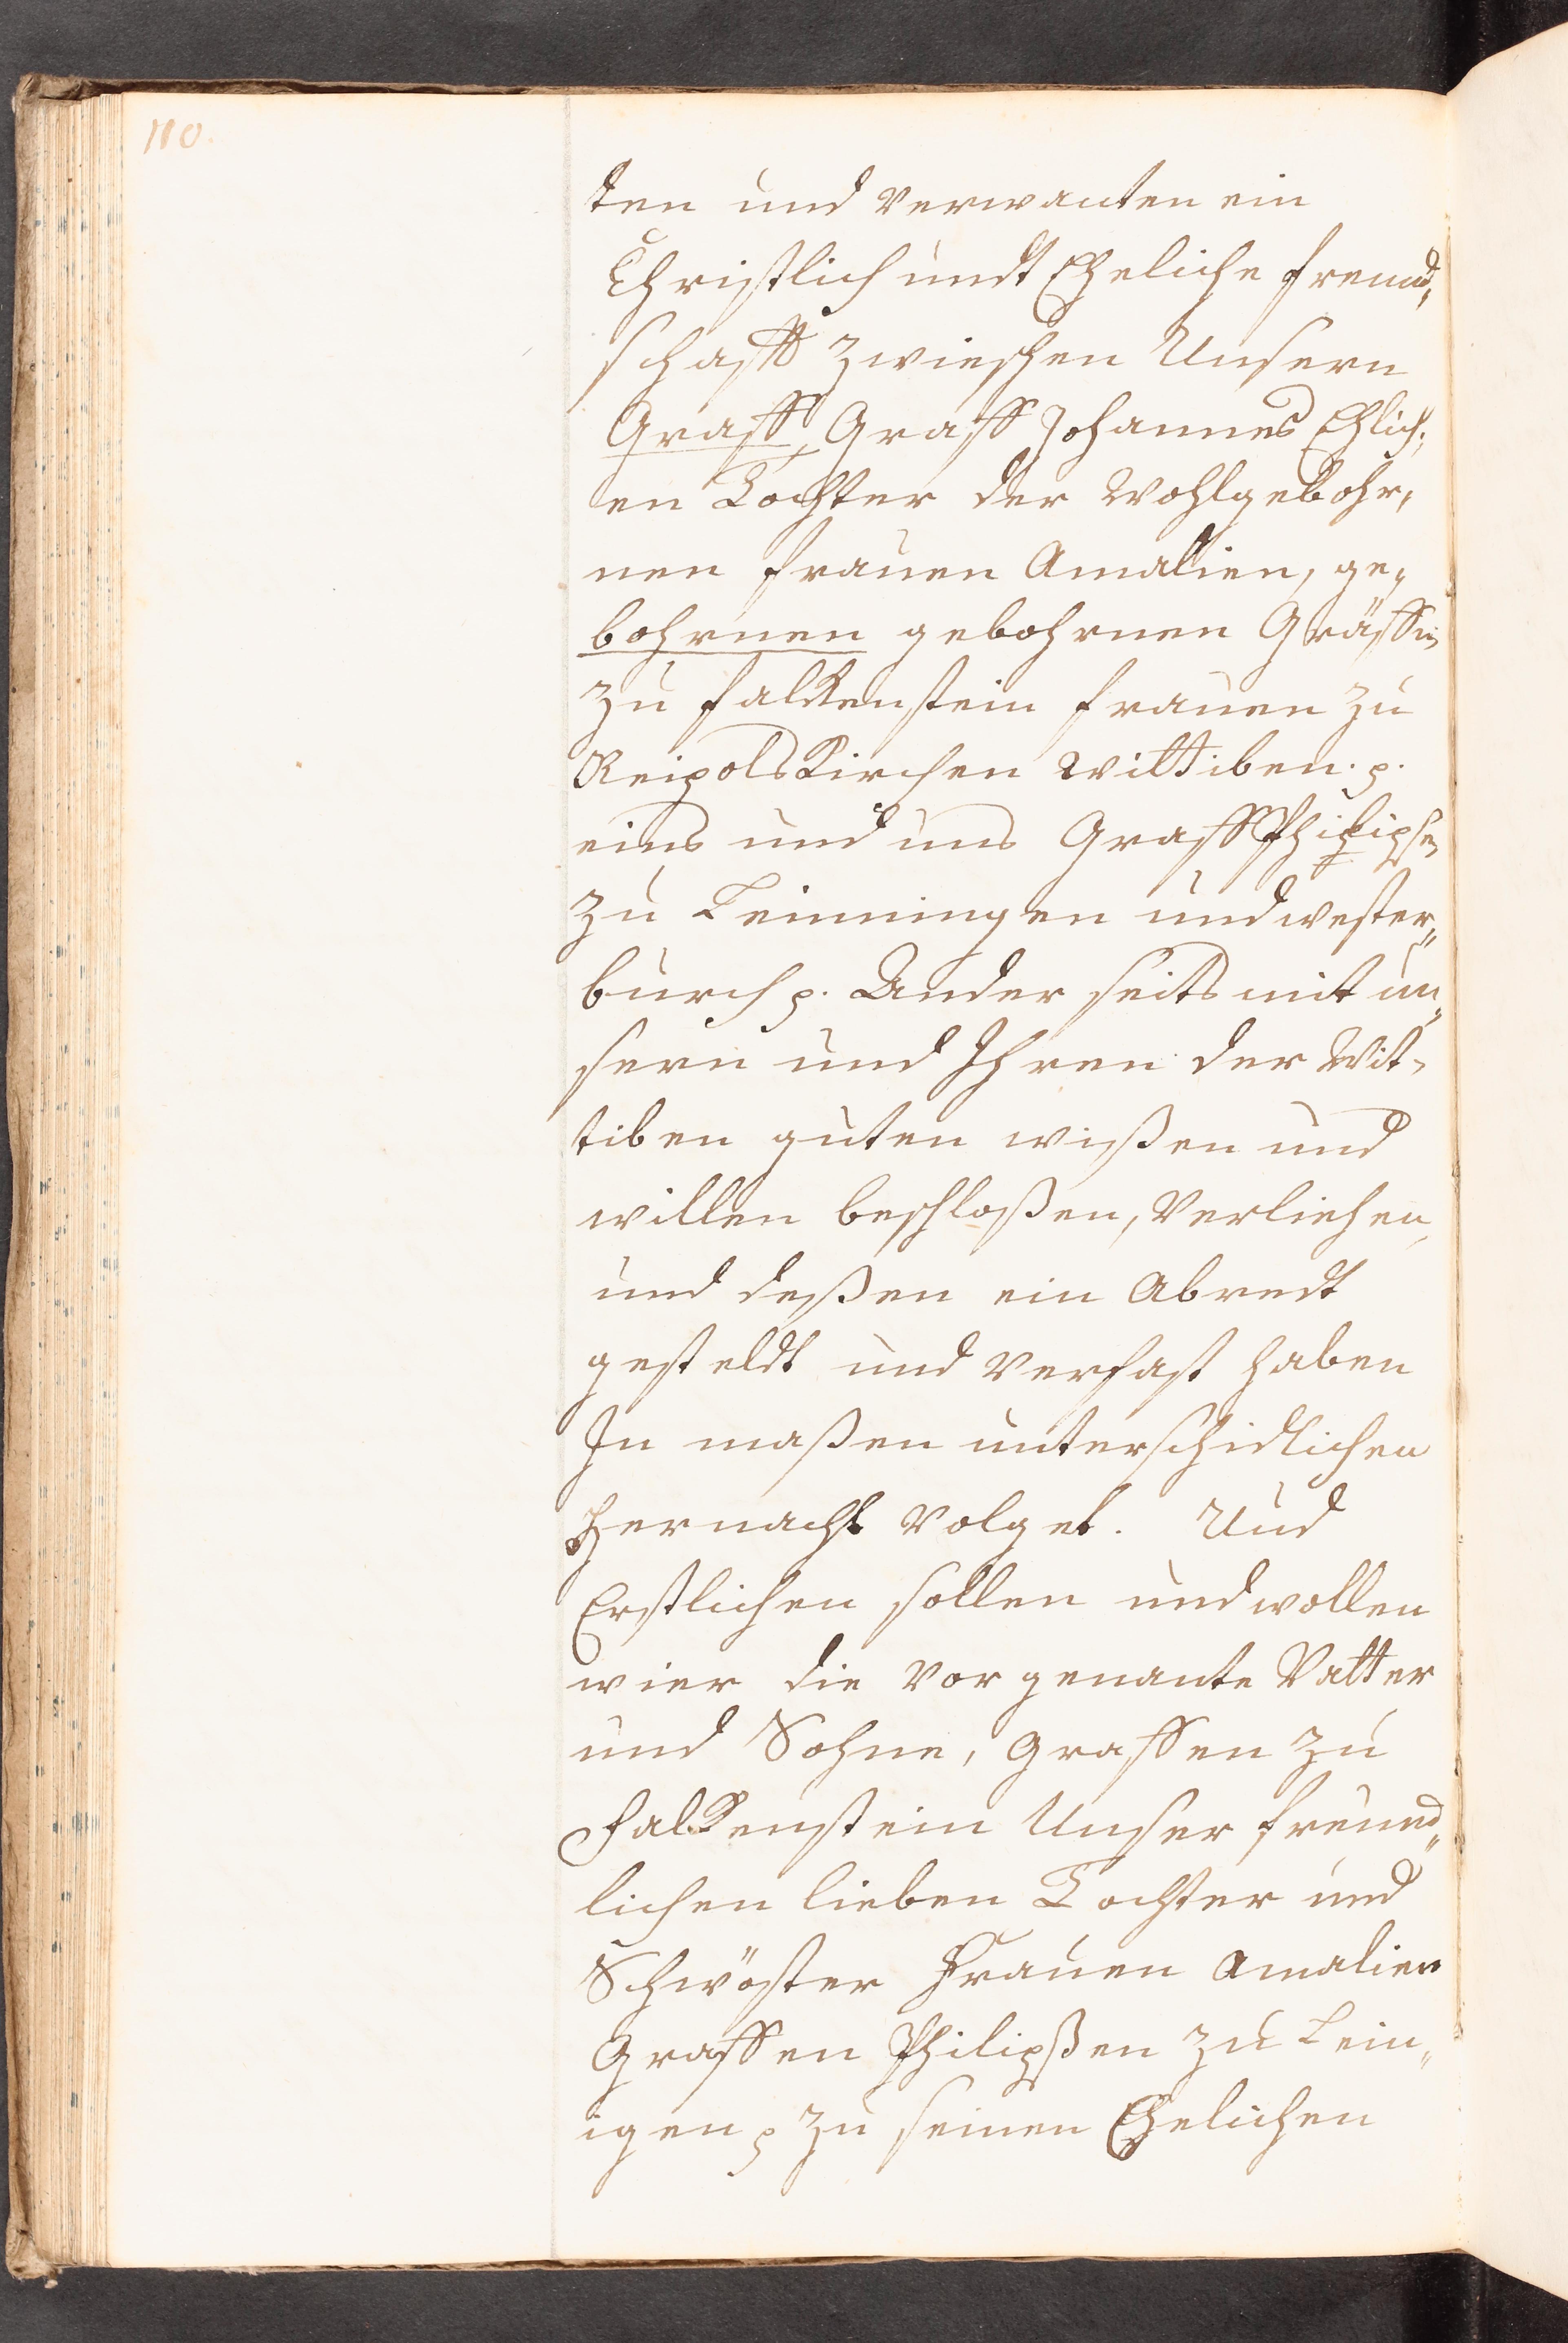 110.
ten und verwanten ein
Christlich undt Eheliche freund„
schafft zwieschen Unsern
Graff, Graff Johannes Ehlich„
en Tochter der Wohlgebohr„
nen frauen Amalien, ge„
bohrnen gebohrnen Gräffin
zu falkenstein frauen zu
Reipolskirchen Wittiben. p.
eins und uns Graff Philipsen
zu Leinningen und wester„
burch p. Ander seits mit un„
sern und Ihren der Wit„
tiben guten wißen und
willen beschloßen, verliehen,
und deßen ein Abredt
gesteldt und verfast haben
In maßen unterschidlichen
Hernacht volget. Und
Erstlichen sollen und wollen
wier die vorgenante Vatter
und Sohne, Graffen zu
Falkenstein Unser freund„
lichen lieben Tochter und
Schwöster Frauen Amalien
Graffen Philipßen zu Lein„
igen p zu seinen Ehelichen